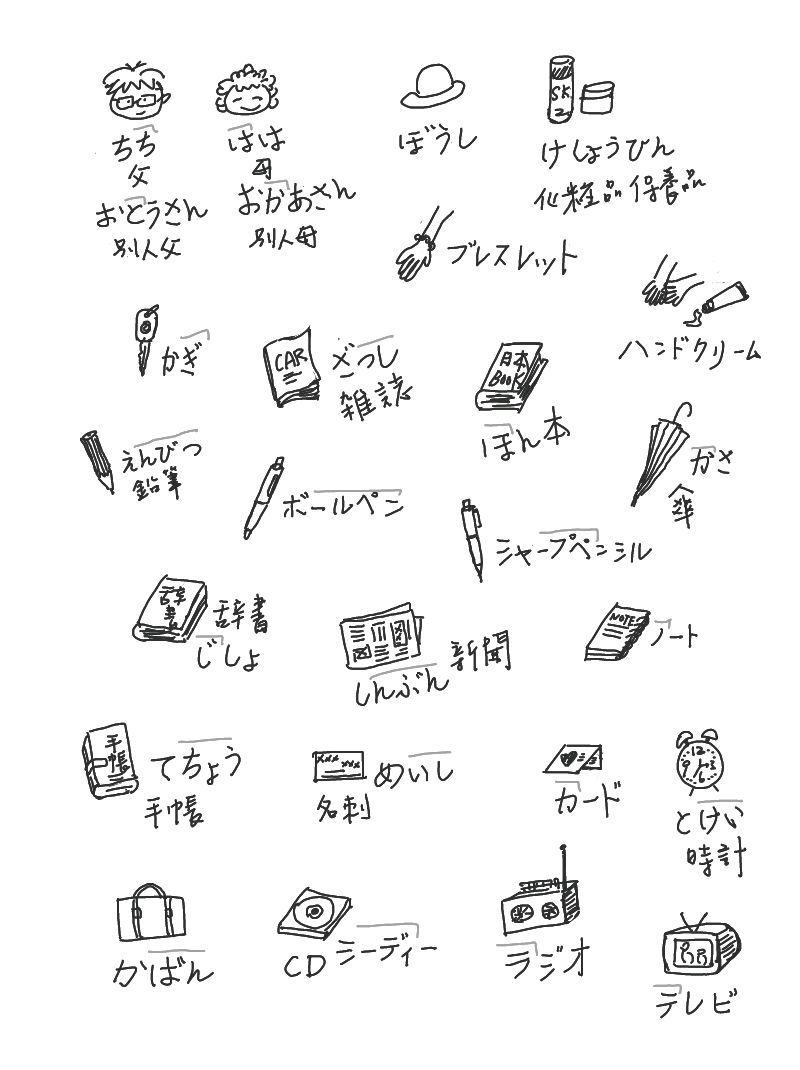 ちち
父
おとうさん
別人父
はは
母
おかあさん
別人母
ぼうし
SK
2
けしょうひん
化粧品 保養品
ブレスレット
ハンドクリーム
かぎ
CAR
ざっし
雑誌
日本
BOOK
ほん 本
かさ
傘
えんぴつ
鉛筆
ボールペン
シャープペンシル
辞書
辞書
じしょ
しんぶん 新聞
NOTE
ノート
手帳
てちょう
手帳
xxx
xxx
めいし
名刺
カード
12
9
3
6
とけい
時計
かばん
CD シーディー
ラジオ
テレビ